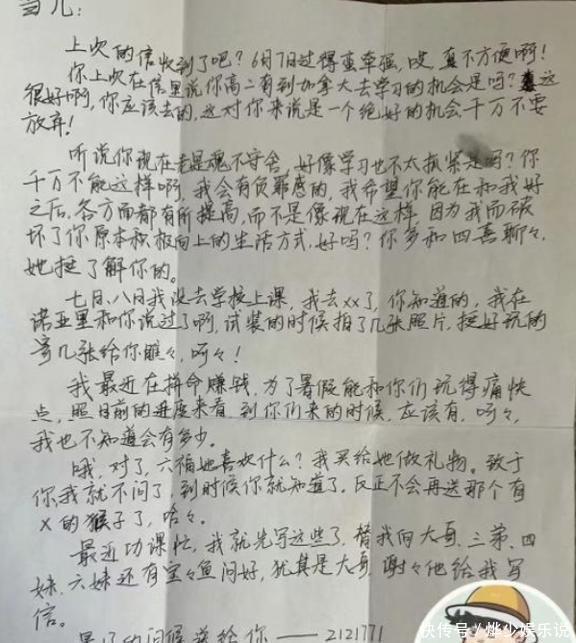 当儿:
上次的信收到了吧?6月7日过得蛮牵强,哎,真不方便啊!
你上次在信里说你高二有到加拿大去学习的机会是吗?这
很好啊,你应该去的,这对你来说是一个绝好的机会千万不要
放弃!
听说你现在老是魂不守舍,好像学习也不太抓紧是吗?你
千万不能这样啊,我会有负罪感的,我希望你能在和我好
之后,各方面都有所提高,而不是像现在这样,因为我而破
坏了你原本积极向上的生活方式,好吗?你多和四喜聊々,
她挺了解你的。
七日、八日我没去学校上课,我去xx了,你知道的,我在
诺亚里和你说过了啊,试装的时候拍了几张照片,挺好玩的
寄几张给你瞧々,呵々!
我最近在拼命赚钱,为了暑假能和你们玩得痛快
点,照目前的进度来看,到你们来的时候,应该有,呵々,
我也不知道会有多少。
哦,对了,六福她喜欢什么?我买给她做礼物。致于
你我就不问了,到时候你就知道了,反正不会再送那个有
X的猴子了,哈々。
最近功课忙,我就先写这些了,替我向大哥、三弟、四
妹、六妹还有宝々鱼问好,犹其是大哥,谢々他给我写
信。
最好的问候送给你——2121771
快传号/烨少娱乐说